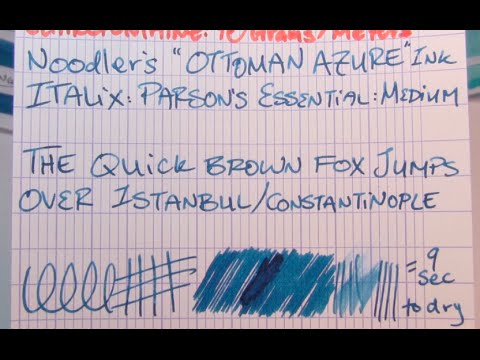 10 Grams/Meters
Noodler's "OTTOMAN AZURE" Ink
ITALix: PARSON'S ESSENTIAL: MEDIUM
THE QuICK BROWN FOX JUMPS
OVER ISTANBUL/CONSTANTINOPLE
= 9
sec
to dry